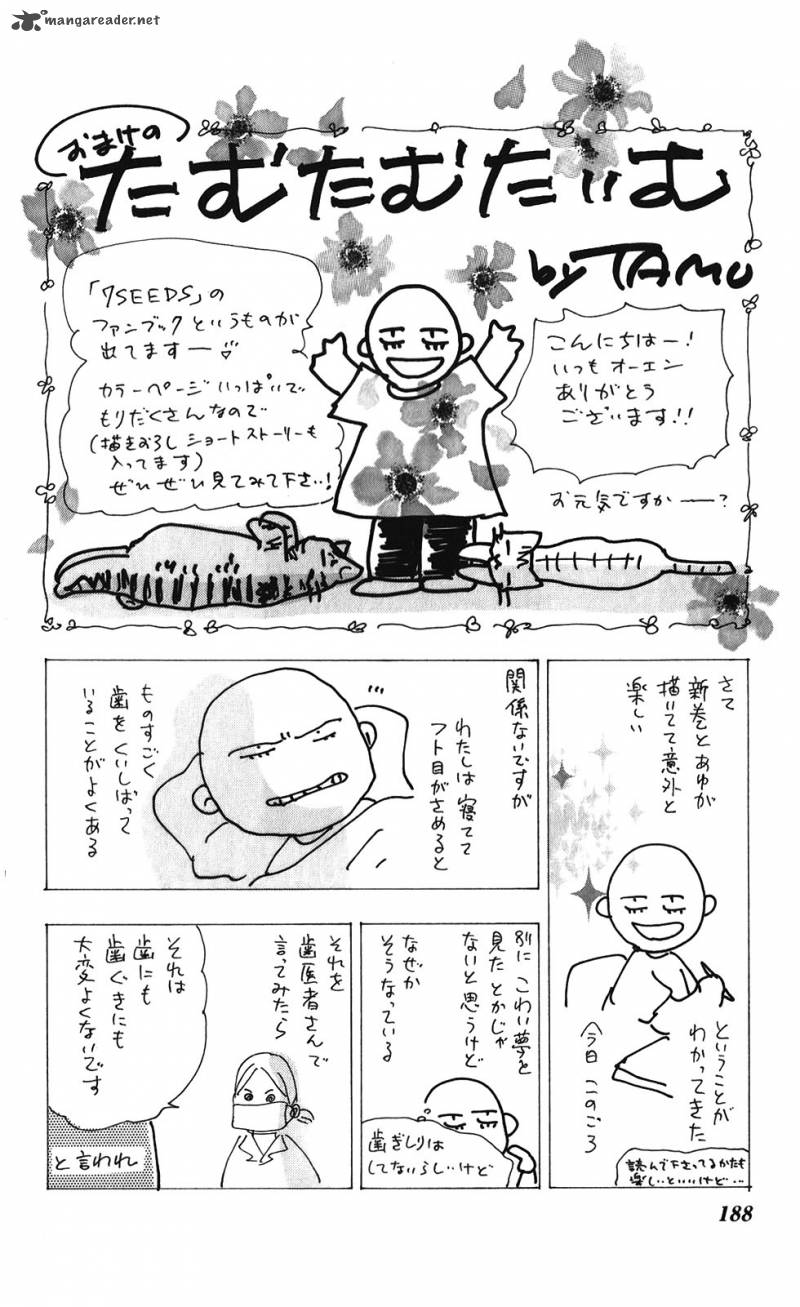 mangareader.net
おまけの
たむたむたいむ
by TAMU
こんにちはー!
いつも オーエン
ありがとう
ございます!!
お元気ですかー?
「7SEEDS」の
ファンブックというものが
出てますー♡
カラーページいっぱいで
もりだくさんなので
(描きおろし ショートストーリーも
入ってます)
ぜひぜひ見てみて下さい!
さて
新巻とあゆが
描いてて意外と
楽しい
ということが
わかってきた
今日このごろ
読んで下さってるかたも
楽しいといいけど…
関係ないですが
わたしは寝てて
フト目がさめると
ものすごく
歯をくいしばって
いることがよくある
別に こわい夢を
見たとかじゃ
ないと思うけど
なぜか
そうなっている
歯ぎしりは
してないらしいけど
それを
歯医者さんで
言ってみたら
それは
歯にも
歯ぐきにも
大変よくないです
と言われ
188